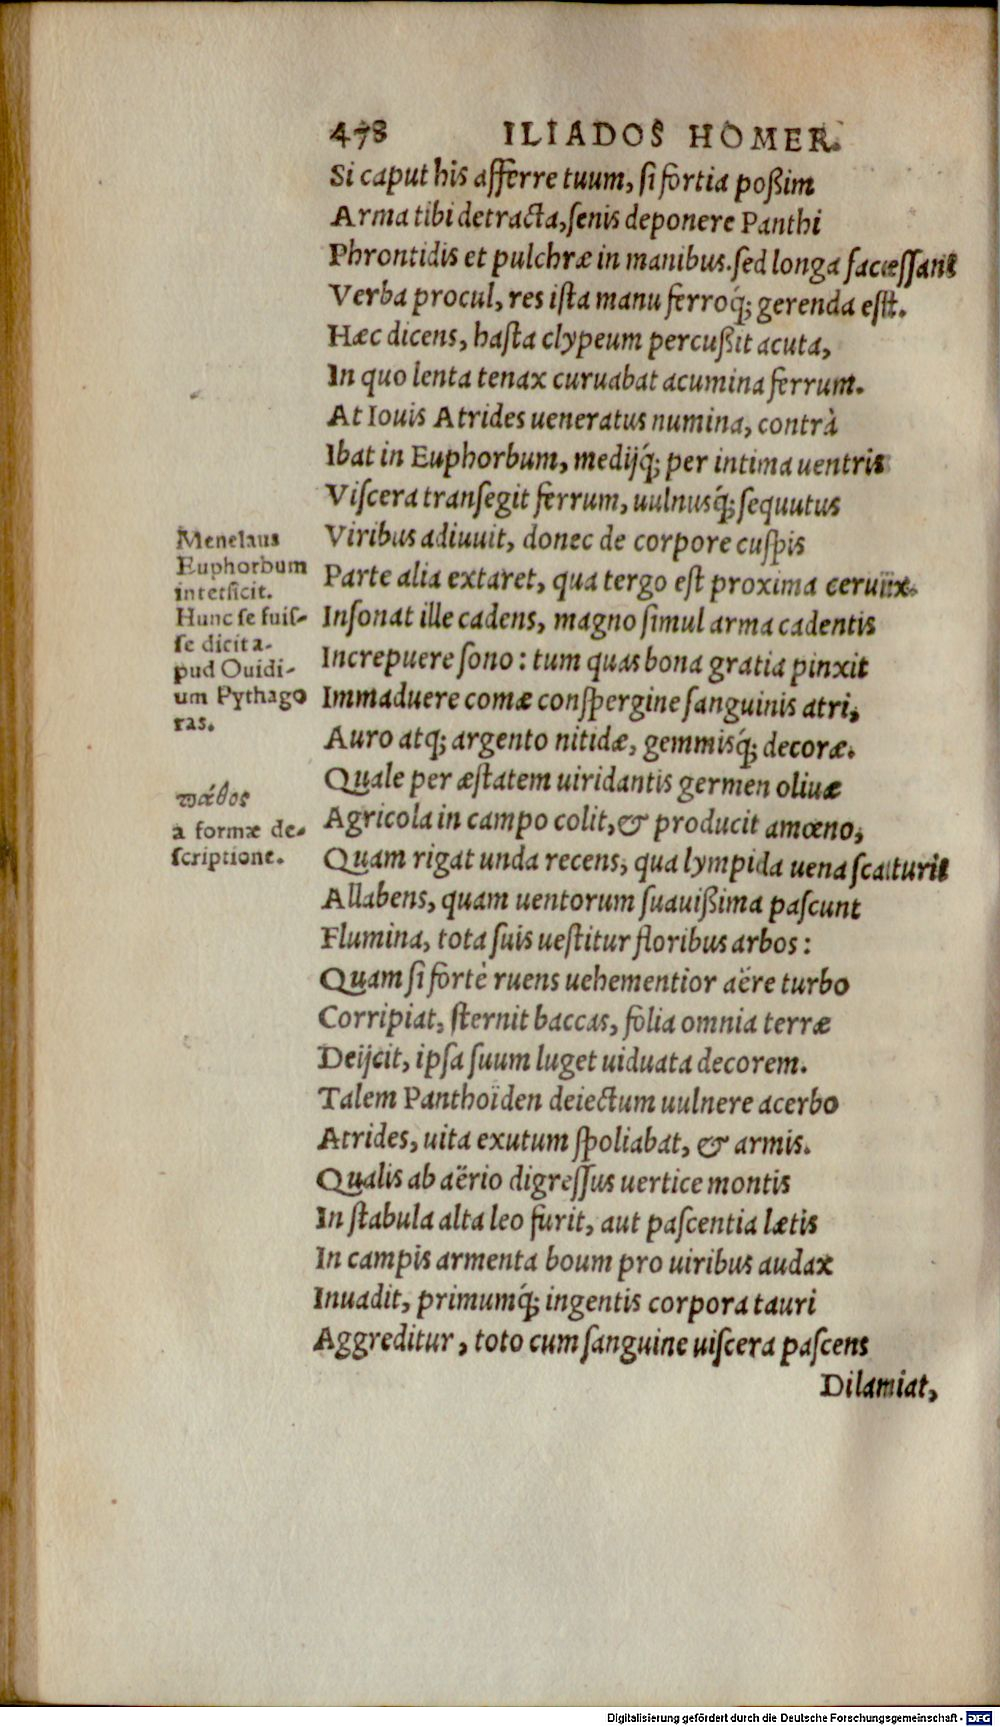 478 ILIADOS HOMER.
Si caput his afferre tuum, si fortia poßim
Arma tibi detracta, senis deponere Panthi
Phrontidis et pulchræ in manibus. sed longa facessant
Verba procul, res ista manu ferroq́; gerenda est.
Hæc dicens, hasta clypeum percußit acuta,
In quo lenta tenax curuabat acumina ferrum.
At Iouis Atrides ueneratus numina, contrà
Ibat in Euphorbum, medijq́; per intima uentris
Viscera transegit ferrum, uulnusq́; sequutus
Viribus adiuuit, donec de corpore cuspis
Parte alia extaret, qua tergo est proxima ceruix.
Insonat ille cadens, magno simul arma cadentis
Increpuere sono: tum quas bona gratia pinxit
Immaduere comæ conspergine sanguinis atri,
Auro atq; argento nitidæ, gemmisq́; decoræ.
Quale per æstatem uiridantis germen oliuæ
Agricola in campo colit, & producit amœno,
Quam rigat unda recens, qua lympida uena scaturit
Allabens, quam uentorum suauißima pascunt
Flumina, tota suis uestitur floribus arbos:
Quam si fortè ruens uehementior aëre turbo
Corripiat, sternit baccas, folia omnia terræ
Deijcit, ipsa suum luget uiduata decorem.
Talem Panthoïden deiectum uulnere acerbo
Atrides, uita exutum spoliabat, & armis.
Qualis ab aërio digressus uertice montis
In stabula alta leo furit, aut pascentia lætis
In campis armenta boum pro uiribus audax
Inuadit, primumq́; ingentis corpora tauri
Aggreditur, toto cum sanguine uiscera pascens
Dilamiat,
Menelaus
Euphorbum
interficit.
Hunc se fuis-
se dicit a-
pud Ouidi-
um Pythago
ras.
πάθος
a formæ de-
scriptione.
Digitalisierung gefördert durch die Deutsche Forschungsgemeinschaft - DFG